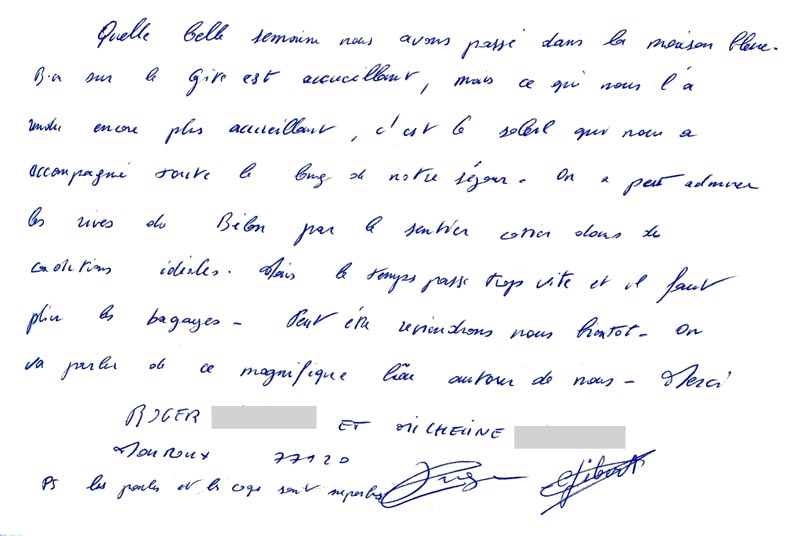 Quelle belle semaine nous avons passé dans la maison bleue.
Bien sur le Gite est accueillant, mais ce qui nous l'a
rendu encore plus accueillant, c'est le soleil qui nous a
accompagné toute le long de notre séjour. On a peut admirer
les rives du Bélon par le sentier cotier dans de
conditions idéales. Mais le temps passe trop vite et il faut
plier les bagages - Peut être reviendrons nous bientot - On
va parler de ce magnifique lieu autour de nous - Merci
ROGER ET MICHELINE
Mouroux 77120
PS les poules et le coq sont superbes